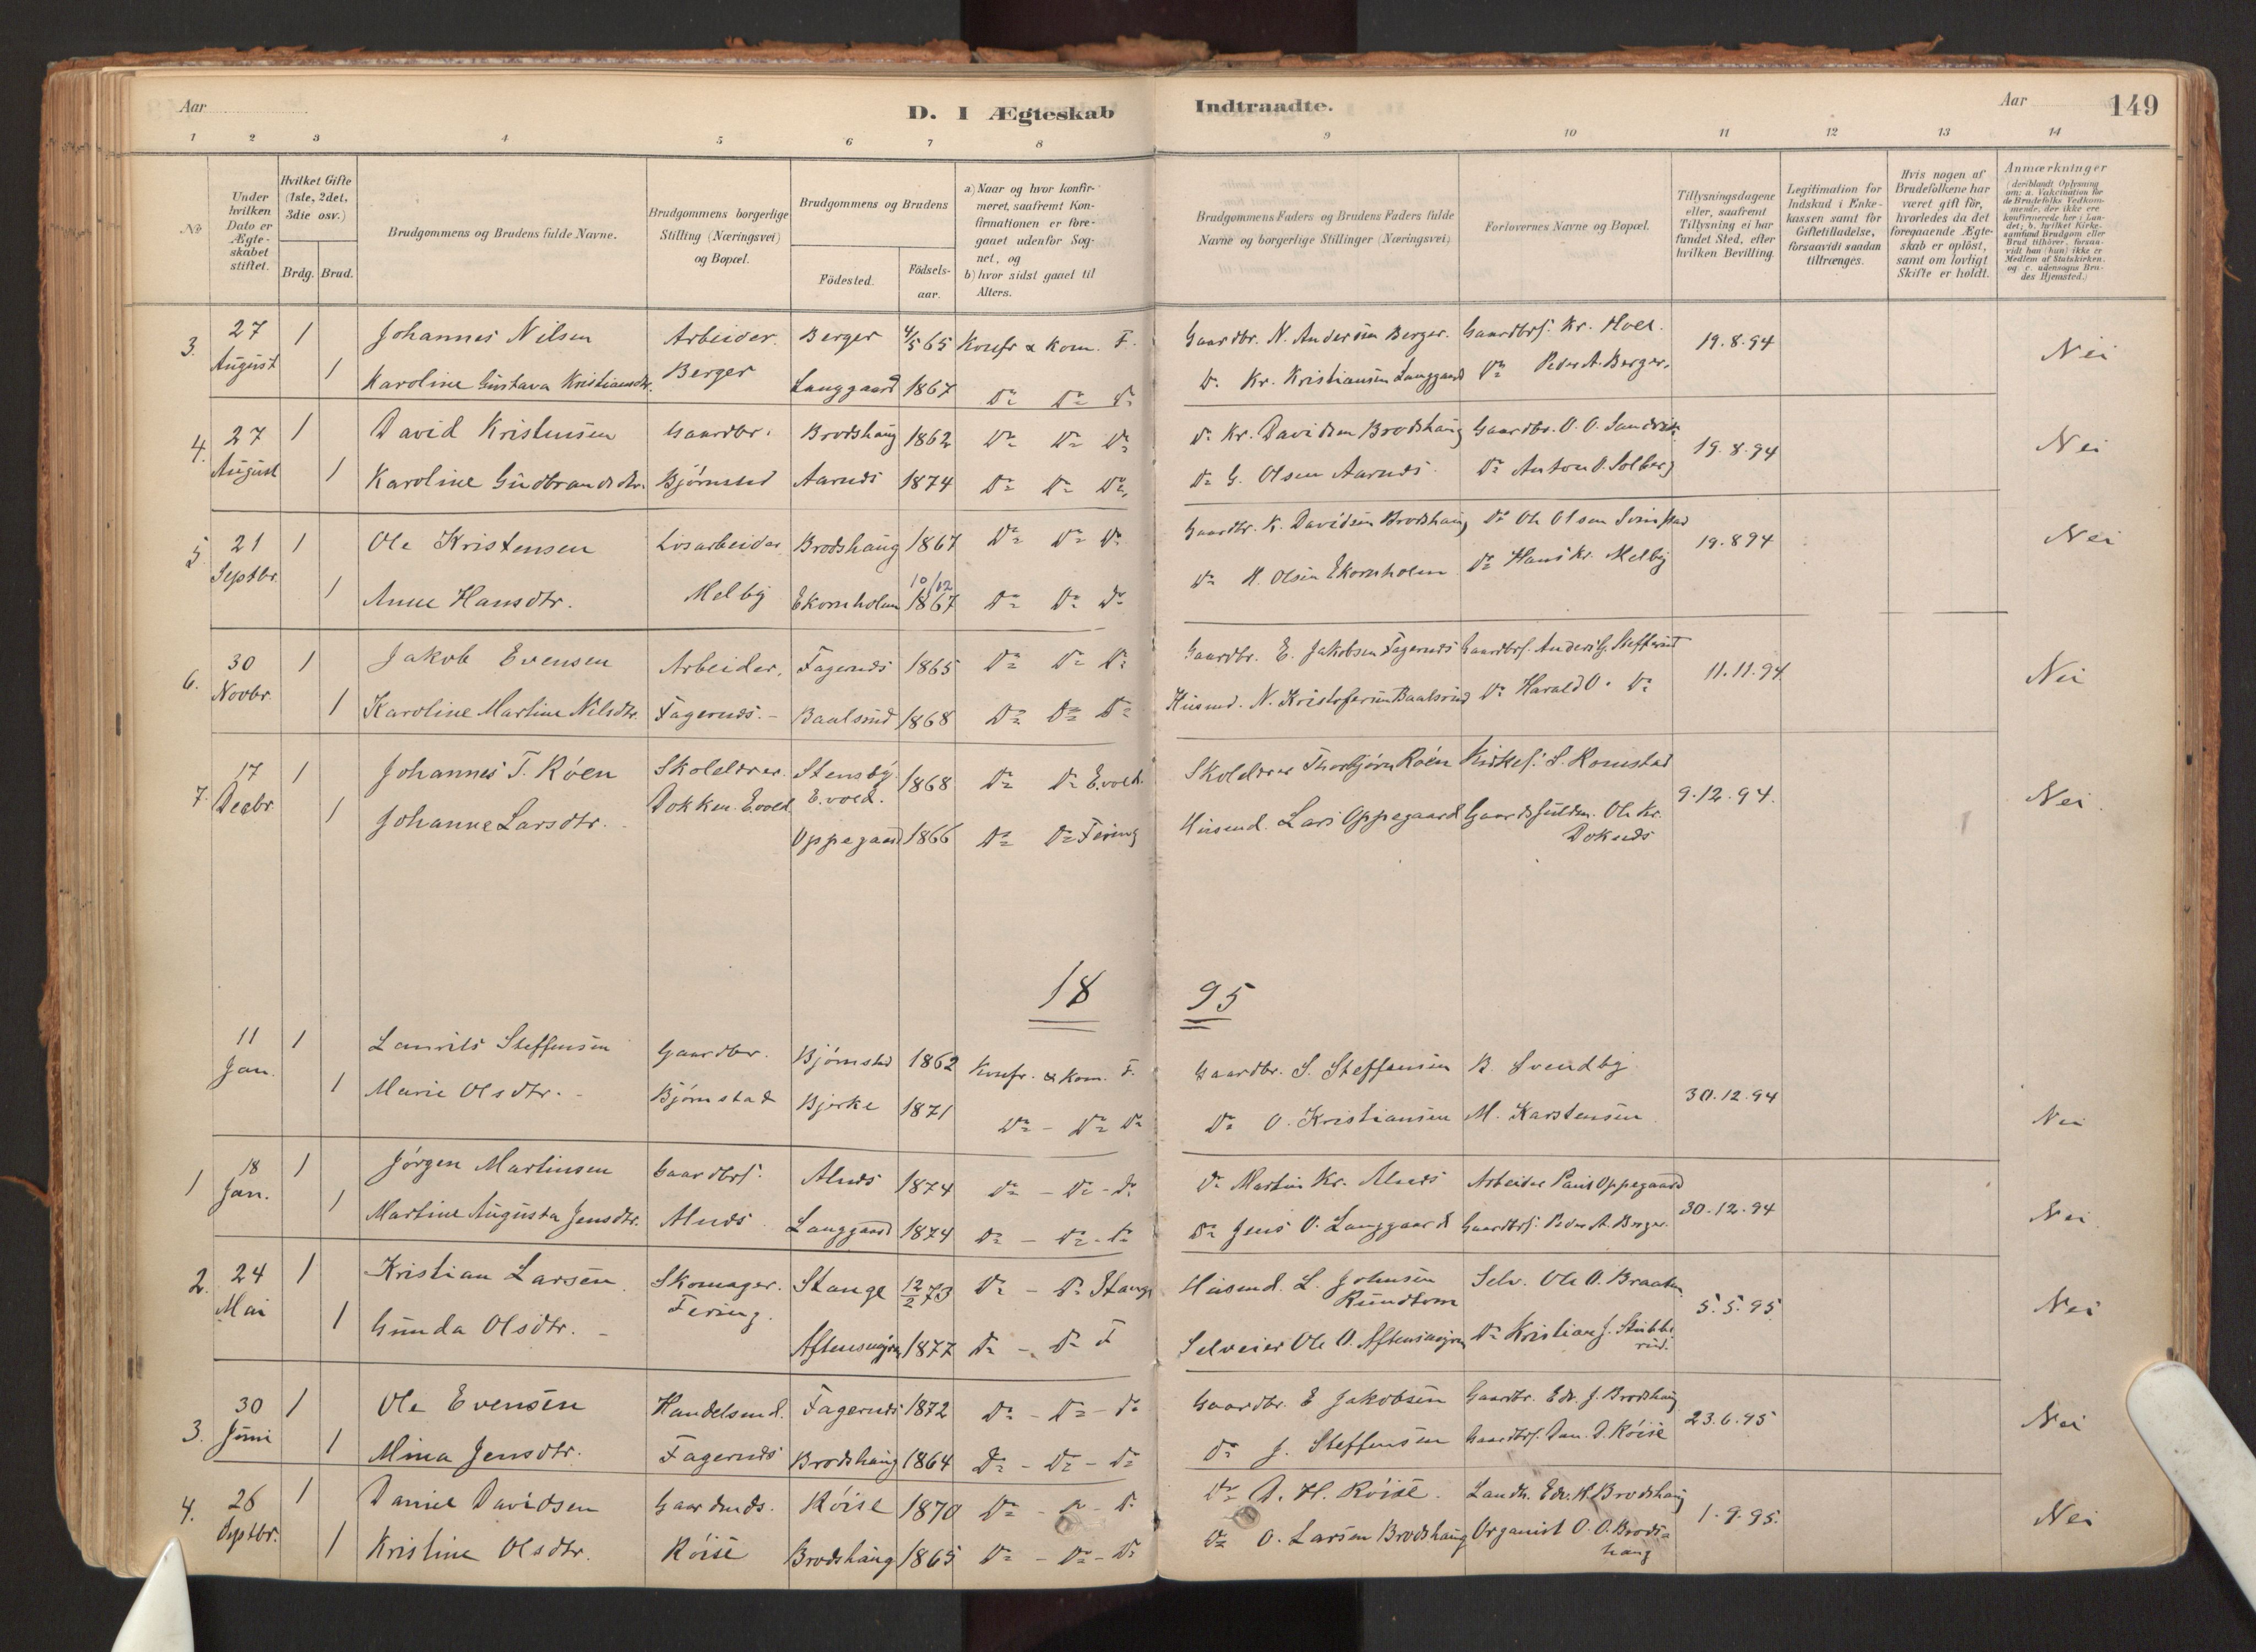 Aar
D. I Ægteskab
Indtraadte.
Aar
149
1 2 3 4 5 6 7 8 9 10 11 12 13 14
No
Under hvilken Dato er Ægteskabet stiftet.
Hvilket Gifte (1ste, 2det, 3die osv.)
Brdg. Brud.
Brudgommens og Brudens fulde Navne.
Brudgommens borgerlige Stilling (Næringsvei) og Bopæl.
Brudgommens og Brudens
Födested.
Födsels-aar.
a) Naar og hvor konfirmeret, saafremt Konfirmationen er foregaaet udenfor Sognet, og
b) hvor sidst gaaet til Alters.
Brudgommens Faders og Brudens Faders fulde Navne og borgerlige Stillinger (Næringsvei)
Forlovernes Navne og Bopæl.
Tillysningsdagene eller, saafremt Tillysning ei har fundet Sted, efter hvilken Bevilling.
Legitimation for Indskud i Enkekassen samt for Giftetilladelse, forsaavidt saadan tiltrænges.
Hvis nogen af Brudefolkene har været gift för, hvorledes da det foregaaende Ægteskab er oplöst, samt om lovligt Skifte er holdt.
Anmærkninger
(deriblandt Oplysning om: a. Vakcination for de Brudefolks Vedkommende, der ikke ere konfirmerede her i Landet; b. hvilket Kirkesamfund Brudgom eller Brud tilhörer, forsaavidt han (hun) ikke er Medlem af Statskirken. og c. udensogns Brudes Hjemsted.)
3. 27 1 Johannes Nilsen Arbeider. Berger 4/5 65 Konfr & Kom. F. Gaardbr. N. Andersen Berger. Gaardbrs. Kr. Hoel. 19.8.94 Nei
August 1 Karoline Gustava Kristiansdtr. Berger Langgaard 1867 Do Do Do Do Kr. Kristiansen Langgaard Do Peder A. Berger.
4. 27 1 David Kristensen Gaardbr. Brodshaug 1862 Do Do Do Do Kr. Davidsen Brodshaug Gaardbr. O. O. Sandvik 19.8.94 Nei
August 1 Karoline Gudbrandsdtr. Bjørnstad Aarnds 1874 Do Do Do Do G. Olsen Aarnds. Do Anton O. Solberg
5 21 1 Ole Kristensen Losarbeider Brodshaug 1867 Do Do Do Gaardbr. K. Davidsen Brodshaug Do Ole Olsen 19.894 Nei
Septbr. 1 Anne Hansdtr. Melby Ekornholm 10/12 1867 Do Do Do Do H. Olsen Ekornholm Do Hans Kr. Melby
6. 30 1 Jakob Evensen Arbeider. Fagernds 1865 Do Do Do Gaardbr. E. Jakobsen Fagernds Gaardbrs. Anders G. 11.11.94 Nei
Novbr. 1 Karoline Martine Nilsdtr. Fagernds. - Baalsrud 1868 Do Do Do Husmd. N. Kristofersen Baalsrud Do Harald O. Do
7. 17 1 Johannes T. Röen Skolelærer. Stensby E.vold. 1868 Do Do E.vold. Skolelærer Thorbjørn Röen Kirkes. S. Romstad 9.12.94. Nei.
Decbr. 1 Johanne Larsdtr. Dokken E.vold Oppegaard 1866 Do Do Fering Husmd. Lars Oppegaard Gaardsfuldm. Ole Kr. Doknds
18 95
11 1 Laurits Steffensen Gaardbr. Bjørnstad 1862 Konfr. & Kom. F. Gaardbr. S. Steffensen B. Svendby 30.12.94 Nei
Jan. 1 Marie Olsdtr. - Bjørnstad Bjerke 1871 Do - Do Do Do O. Kristiansen M. Karstensen
1 18 1 Jørgen Martinsen Gaardbrs. Alnds 1874 Do - Do - Do Do Martin Kr. Alnds Arbeider Paul Oppegaard 30.12.94 Nei
Jan. 1 Martine Augusta Jensdtr. Alnds. Langgaard 1874 Do - Do - Do Do Jens O. Langgaard Gaardbrs. Peder A. Berger.
2. 24 1 Kristian Larsen. Skomager. Stange 12/2 73 Do - Do Stange Husmd. L. Johnsen Rundtom Selv. Ole O. Braaten 5.5.95 Nei
Mai 1 Gunda Olsdtr. - Fering. Aftensugjen 1877 Do - Do F Selveier Ole O. Aftensugjen Do Kristian J. Stubberud.
3. 30 1 Ole Evensen Handelsmd. Fagernds 1872 Do - Do - Do Gaardbr. E Jakobsen Gaardbr. Edv. J. Brodshaug 23.6.95 Nei
Juni 1 Mina Jensdtr. Fagernds Brodshaug 1864 Do - Do - Do Do J. Steffensen Gaardbrs. Dan. D. Röise
4. 26 1 Daniel Davidsen Gaardmds. Röise 1870 Do - Do - Do Do D. H. Röise. Landh. Edv. K. Brodshaug 1.9.95. Nei
Septbr. 1 Kristine Olsdtr. Röise Brodshaug 1865 Do - Do - Do Do O. Larsen Brodshaug Organist O. O. Brodshaug